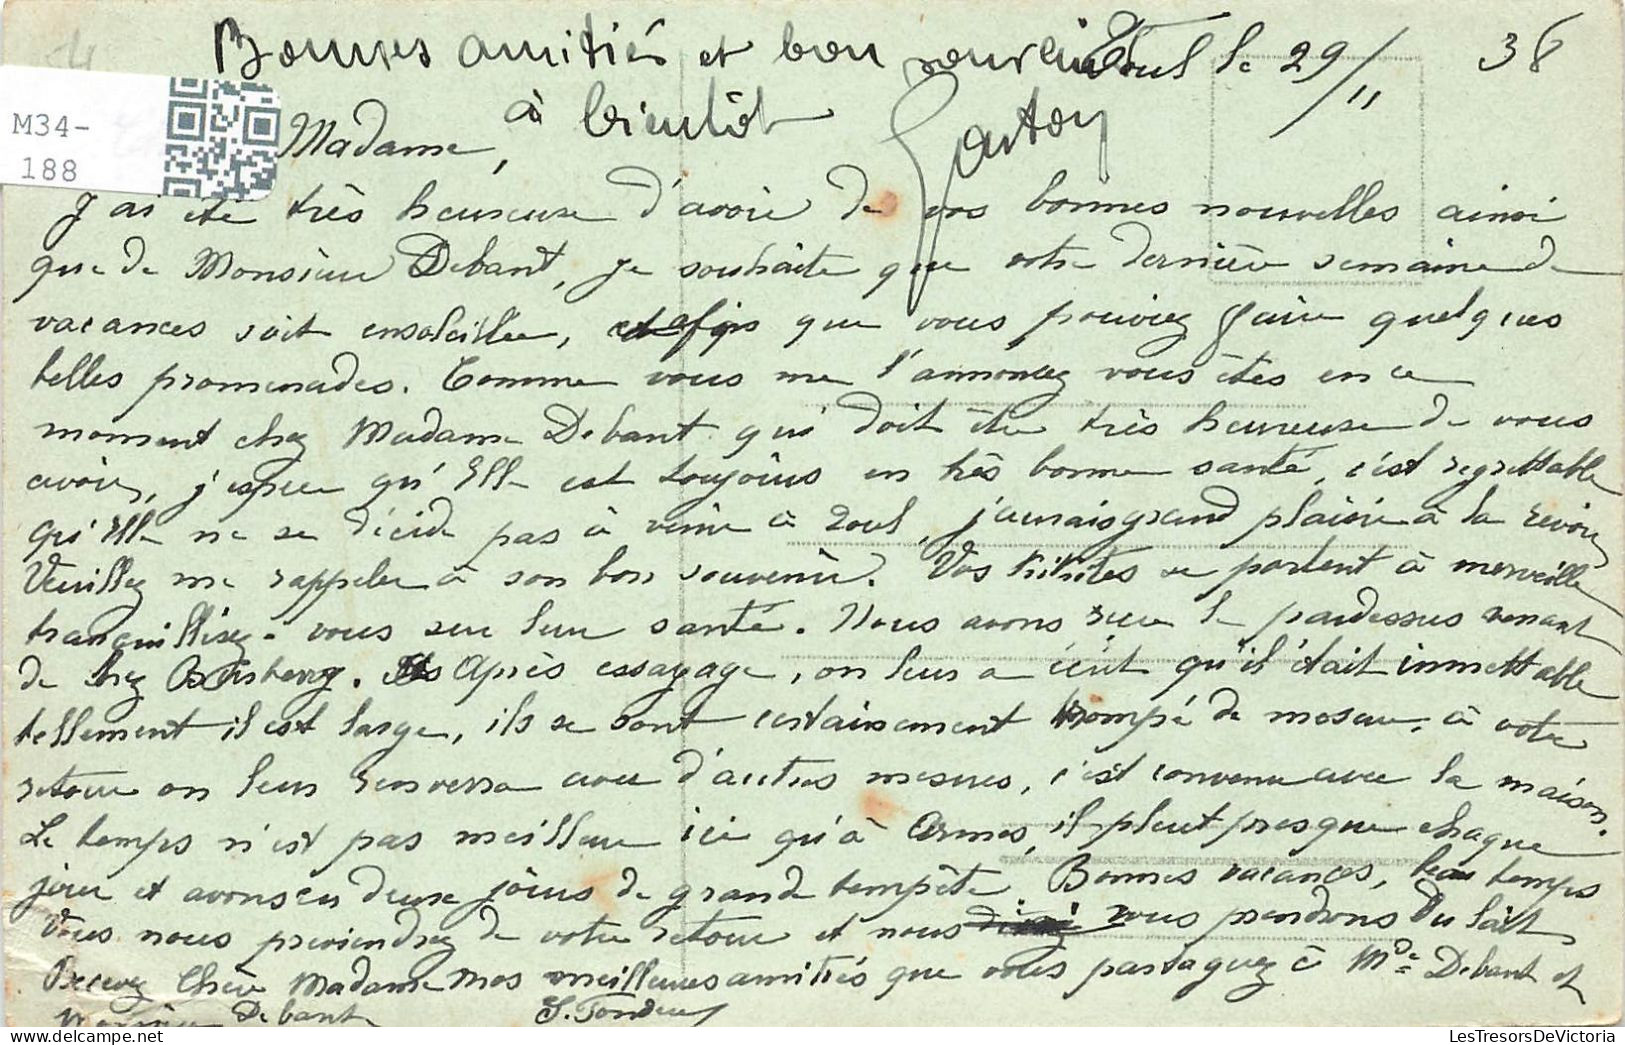 Bonnes amitiés et bon souvenir Toul le 29/11 38
à bientôt Gaston
M34-
188
Madame,
J'ai été très heureuse d'avoir de vos bonnes nouvelles ainsi
que de Monsieur Debant, je souhaite que votre dernière semaine de
vacances soit ensoleillée, afin que vous pouviez faire quelques
belles promenades. Comme vous me l'annoncez vous êtes en ce
moment chez Madame Debant qui doit être très heureuse de vous
avoir, j'espère qu'Elle est toujours en très bonne santé, c'est regrettable
qu'Elle ne se décide pas à venir à Toul, j'aurais grand plaisir à la revoir
Veuillez me rappeler à son bon souvenir. Vos se portent à merveille
tranquillisez-vous sur leur santé. Nous avons reçu le pardessus venant
de chez Après essayage, on leur a écrit qu'il était inmettable
tellement il est large, ils se sont certainement trompé de mesure, à votre
retour on leur renverra avec d'autres mesures, c'est convenu avec la maison.
Le temps n'est pas meilleur ici qu'à il pleut presque chaque
jour et avons eu deux jours de grande tempête. Bonnes vacances, beau temps
Vous nous préviendrez de votre retour et nous vous prendrons du lait
Recevez Chère Madame nos meilleures amitiés que vous partagerez à Mde Debant et
Monsieur Debant
LesTresorsDeVictoria